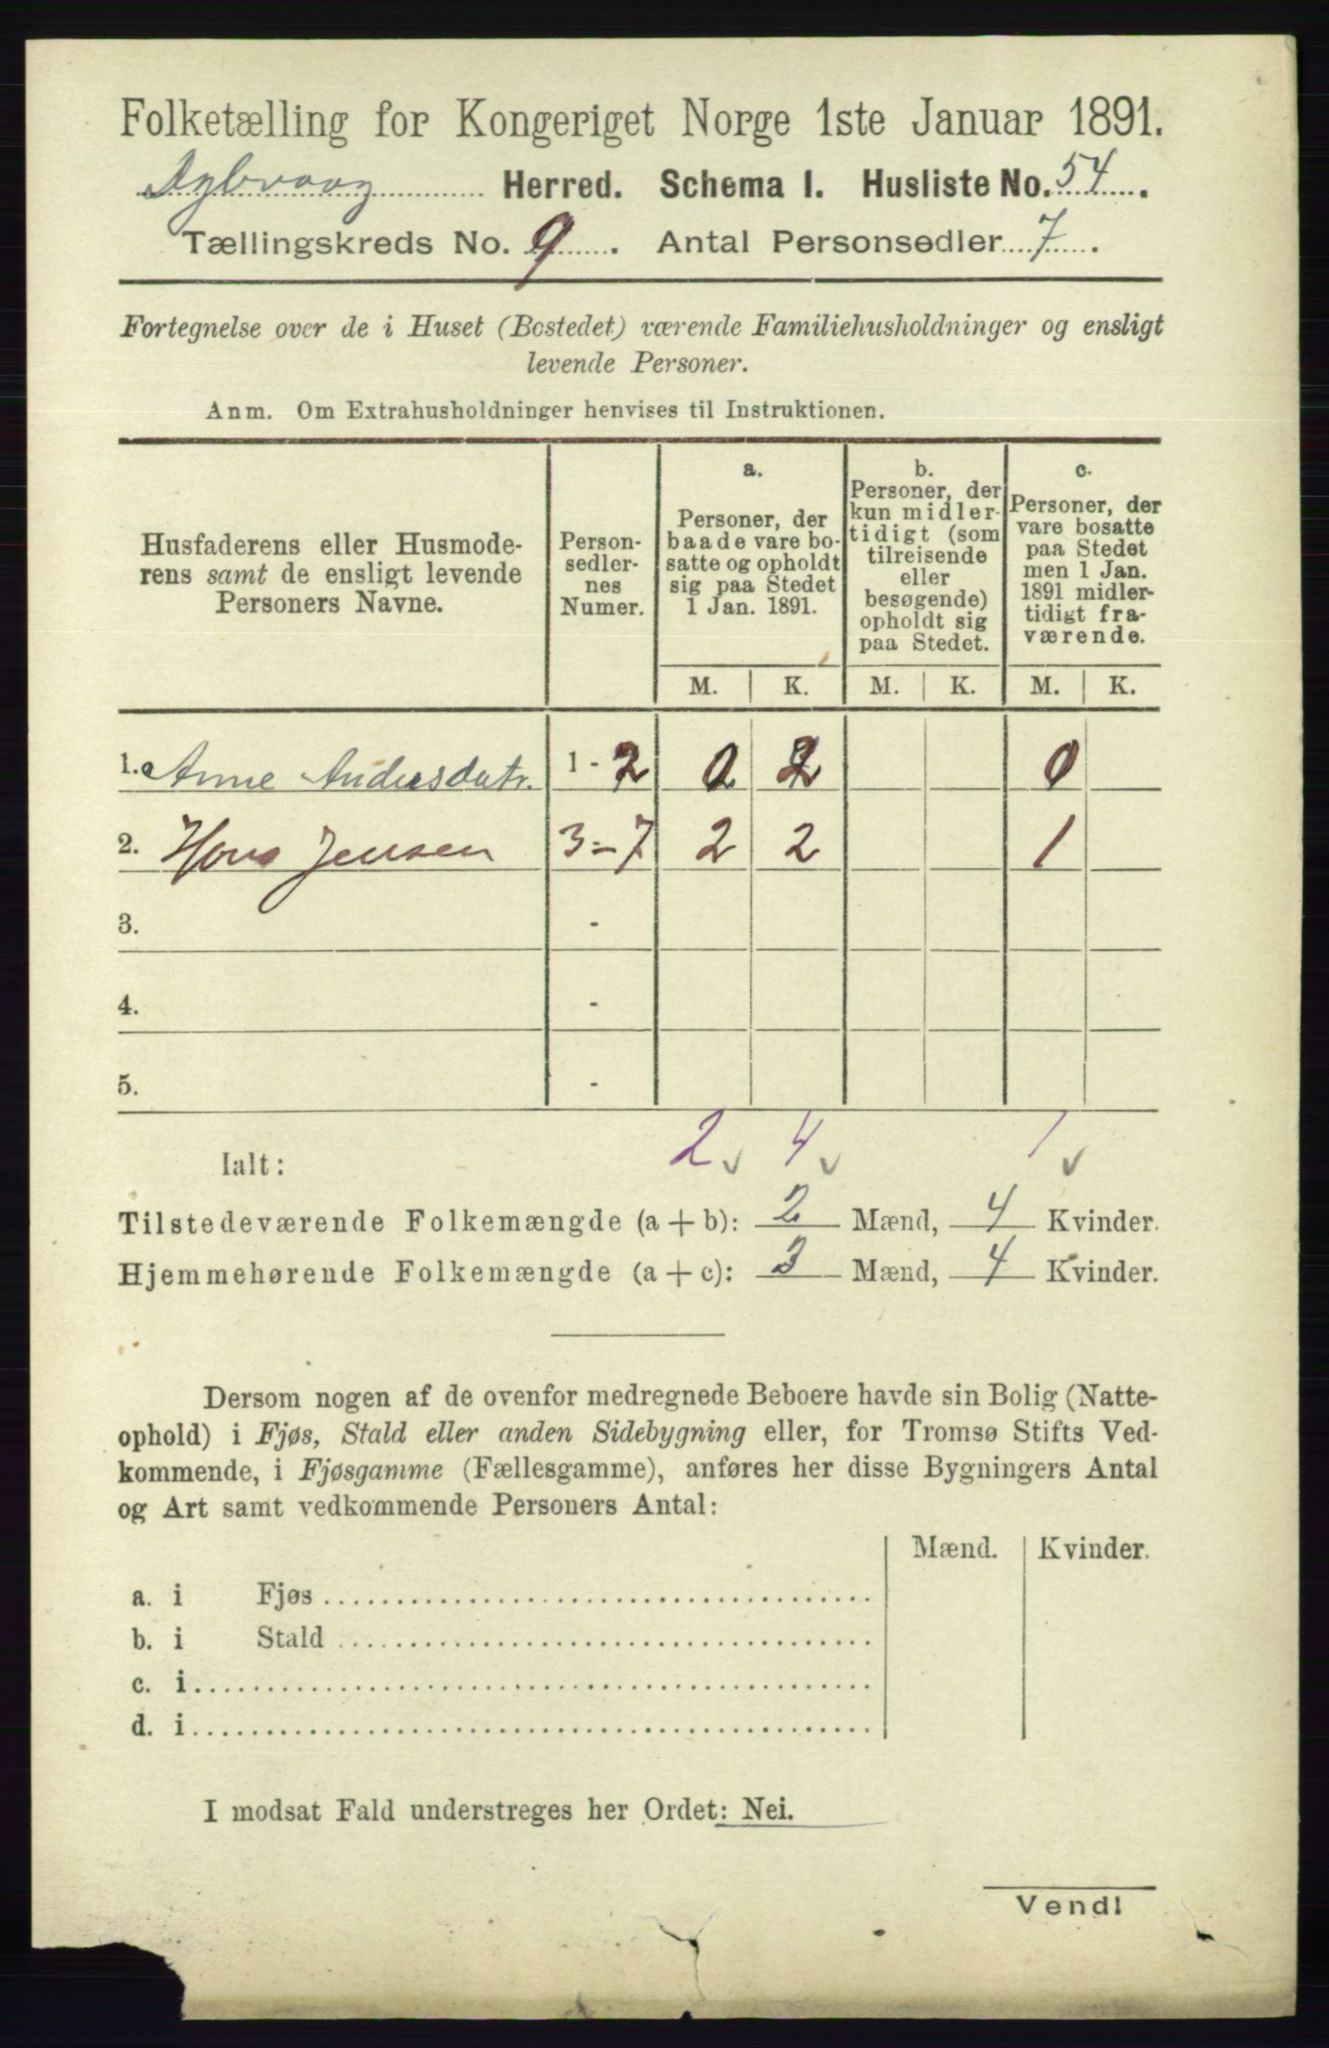 Folketælling for Kongeriget Norge 1ste Januar 1891.
Dybvaag Herred. Schema I. Husliste No. 54.
Tællingskreds No. 9. Antal Personsedler 7.
Fortegnelse over de i Huset (Bostedet) værende Familiehusholdninger og ensligt
levende Personer.
Anm. Om Extrahusholdninger henvises til Instruktionen.
Husfaderens eller Husmode-
rens samt de ensligt levende
Personers Navne.
Person-
sedler-
nes
Numer.
a.
Personer, der
baade vare bo-
satte og opholdt
sig paa Stedet
1 Jan. 1891.
b.
Personer, der
kun midler-
tidigt (som
tilreisende
eller
besøgende)
opholdt sig
paa Stedet.
c.
Personer, der
vare bosatte
paa Stedet
men 1 Jan.
1891 midler-
tidigt fra-
værende.
M. K. M. K. M. K.
1. Anne Andersdatr. 1 - 2 0 2 0
2. Hans Jensen 3-7 2 2 1
3. -
4. -
5. -
Ialt: 2 v 4 v 1 v
Tilstedeværende Folkemængde (a + b): 2 Mænd, 4 Kvinder.
Hjemmehørende Folkemængde (a + c): 3 Mænd, 4 Kvinder.
Dersom nogen af de ovenfor medregnede Beboere havde sin Bolig (Natte-
ophold) i Fjøs, Stald eller anden Sidebygning eller, for Tromsø Stifts Ved-
kommende, i Fjøsgamme (Fællesgamme), anføres her disse Bygningers Antal
og Art samt vedkommende Personers Antal:
Mænd. Kvinder.
a. i Fjøs
b. i Stald
c. i
d. i
I modsat Fald understreges her Ordet: Nei.
Vend!